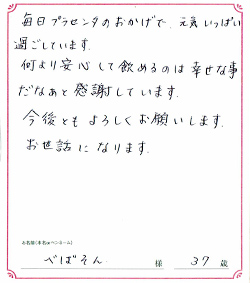 毎日プラセンタのおかげで、元気いっぱい
過ごしています。
何より安心して飲めるのは幸せな事
だなぁと感謝しています。
今後ともよろしくお願いします。
お世話になります。
お名前(本名orペンネーム)
べばそん 様 37 歳